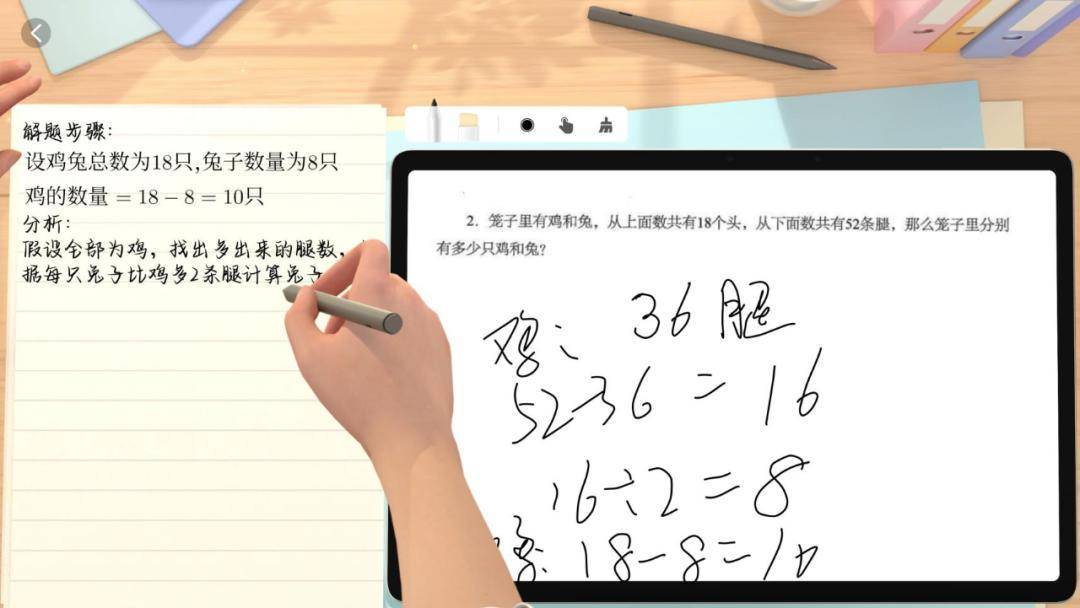 解题步骤:
设鸡兔总数为18只,兔子数量为8只
鸡的数量 = 18 − 8 = 10只
分析:
假设全部为鸡，找出多出来的腿数，
据每只兔子比鸡多2条腿计算兔子
2．笼子里有鸡和兔，从上面数共有18个头，从下面数共有52条腿，那么笼子里分别
有多少只鸡和兔？
鸡: 36腿
52-36 = 16
16÷2=8
18-8=10